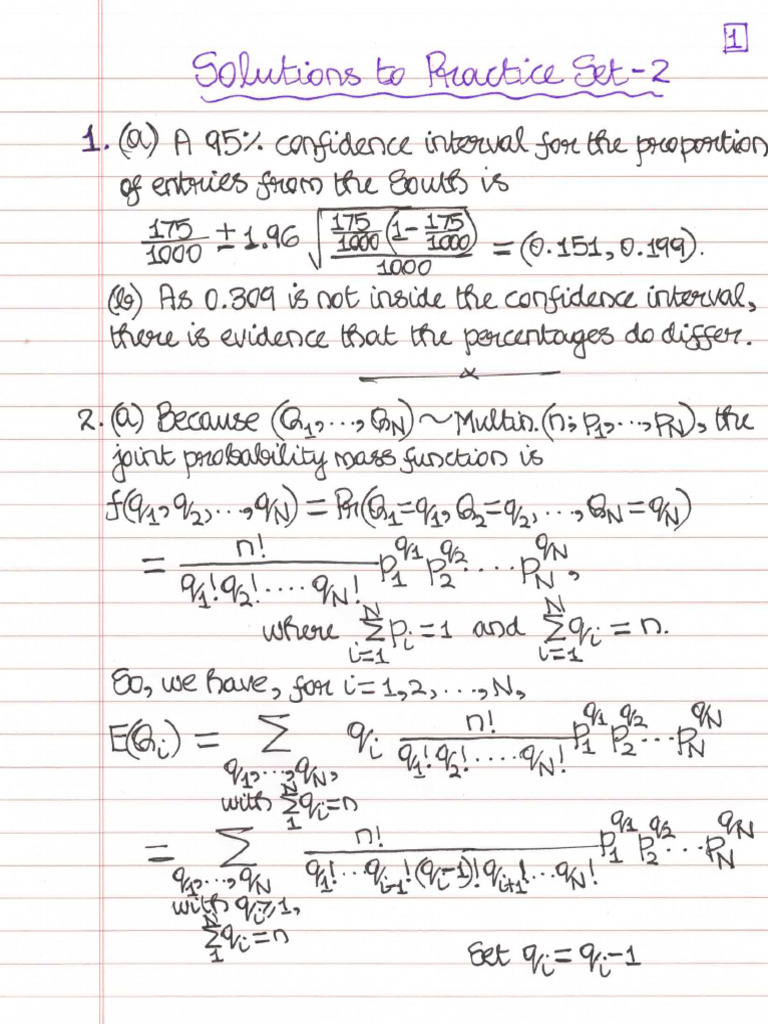 1
Solutions to Practice Set-2
1. (a) A 95% confidence interval for the proportion
of entries from the South is
175/1000 ± 1.96 √((175/1000)(1 - 175/1000)/1000) = (0.151, 0.199).
(b) As 0.309 is not inside the confidence interval,
there is evidence that the percentages do differ.
x
2. (a) Because (Q₁, ..., Q_N) ~ Multin. (n; p₁, ..., p_N), the
joint probability mass function is
f(q₁, q₂, ..., q_N) = Pr(Q₁=q₁, Q₂=q₂, ..., Q_N=q_N)
= n!/(q₁! q₂! ..... q_N!) p₁^q₁ p₂^q₂ ..... p_N^q_N,
where Σ_{i=1}^{N} p_i = 1 and Σ_{i=1}^{N} q_i = n.
So, we have, for i = 1, 2, ..., N,
E(Q_i) = Σ_{q₁, ..., q_N, with Σ_1^N q_i = n} q_i n!/(q₁! q₂! ..... q_N!) p₁^q₁ p₂^q₂ ... p_N^q_N
= Σ_{q₁, ..., q_N with q_i ≥ 1, Σ_1^N q_i = n} n!/(q₁! ... q_{i-1}! (q_i-1)! q_{i+1}! ... q_N!) p₁^q₁ p₂^q₂ ... p_N^q_N
Set q_i = q_i - 1